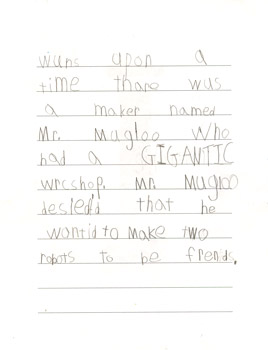 wuns upon a
time thare wus
a maker named
Mr. Magloo who
had a GIGANTIC
wrcshop. Mr. Magoo
desied'd that he
wantid to make two
robots to be frends.